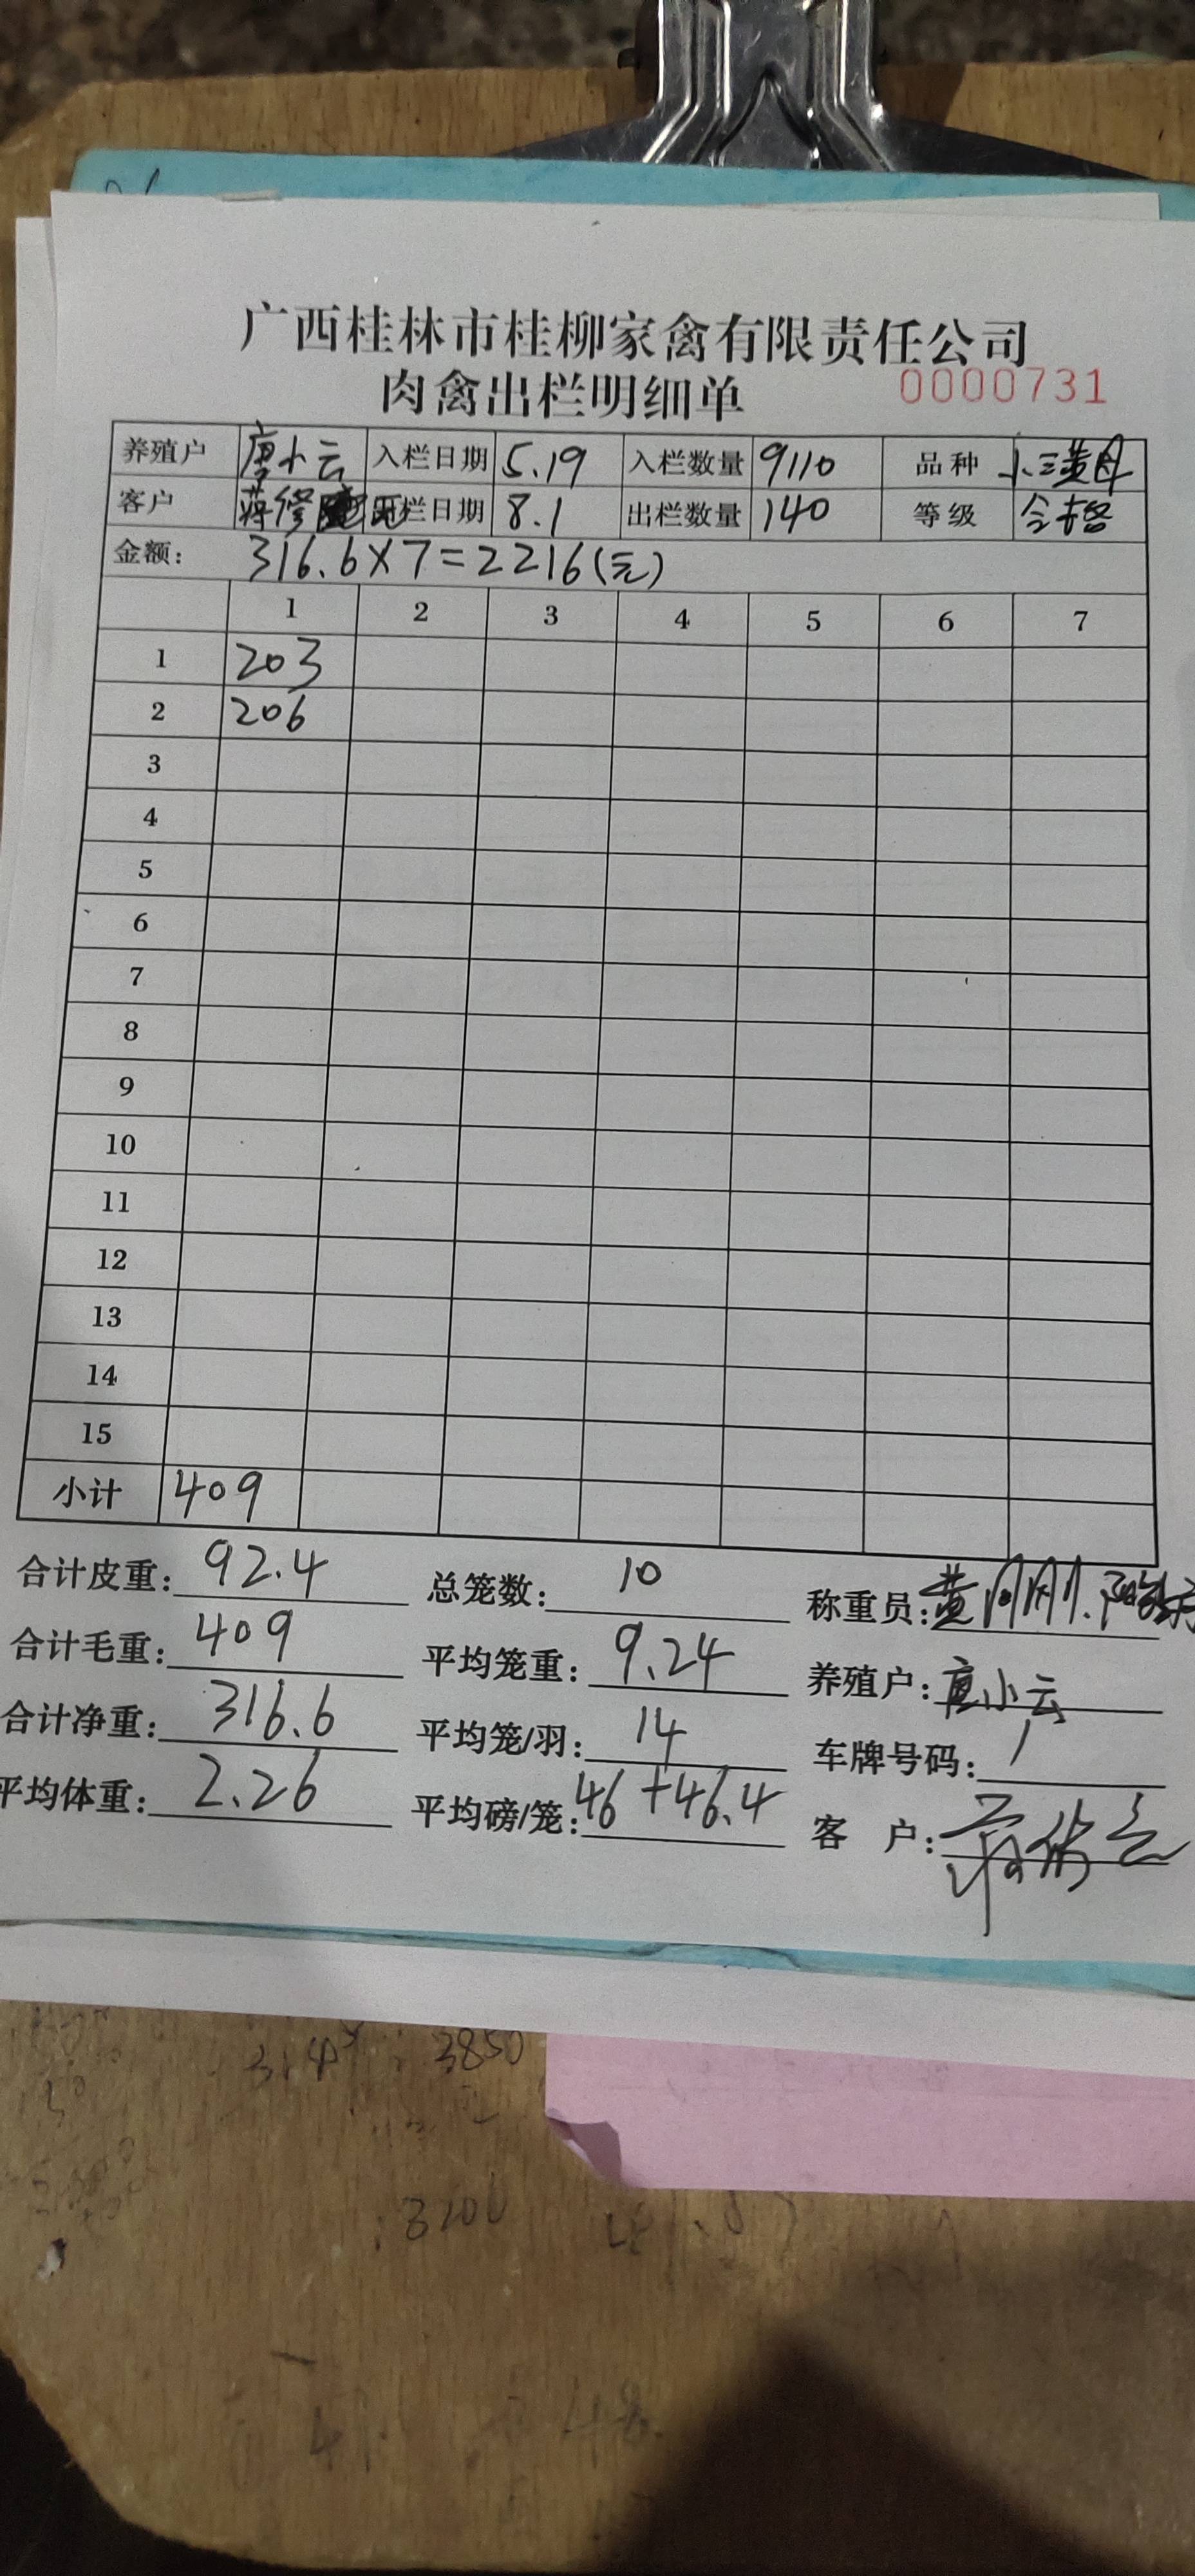 广西桂林市桂柳家禽有限责任公司
肉禽出栏明细单 0000731
养殖户 唐小云 入栏日期 5.19 入栏数量 9110 品种 小三黄母
客户 蒋修 栏日期 8.1 出栏数量 140 等级 合格
金额: 316.6×7=2216(元)
1 2 3 4 5 6 7
1 203
2 206
3
4
5
6
7
8
9
10
11
12
13
14
15
小计 409
合计皮重: 92.4 总笼数: 10 称重员: 黄刚刚.
合计毛重: 409 平均笼重: 9.24 养殖户: 唐小云
合计净重: 316.6 平均笼/羽: 14 车牌号码: /
平均体重: 2.26 平均磅/笼: 46+46.4 客 户:
3850